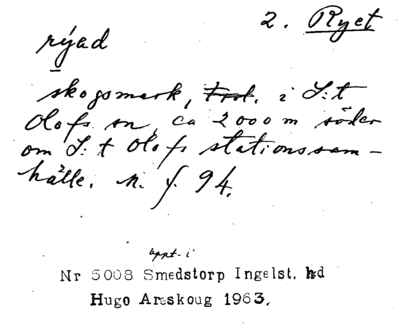 2. Ryet
rýad
skogsmark, i S:t
Olofs sn, ca 2000 m söder
om S:t Olofs stationssam-
hälle. n. f. 94.
uppt. i
Nr 5008 Smedstorp Ingelst. hd
Hugo Areskoug 1963.